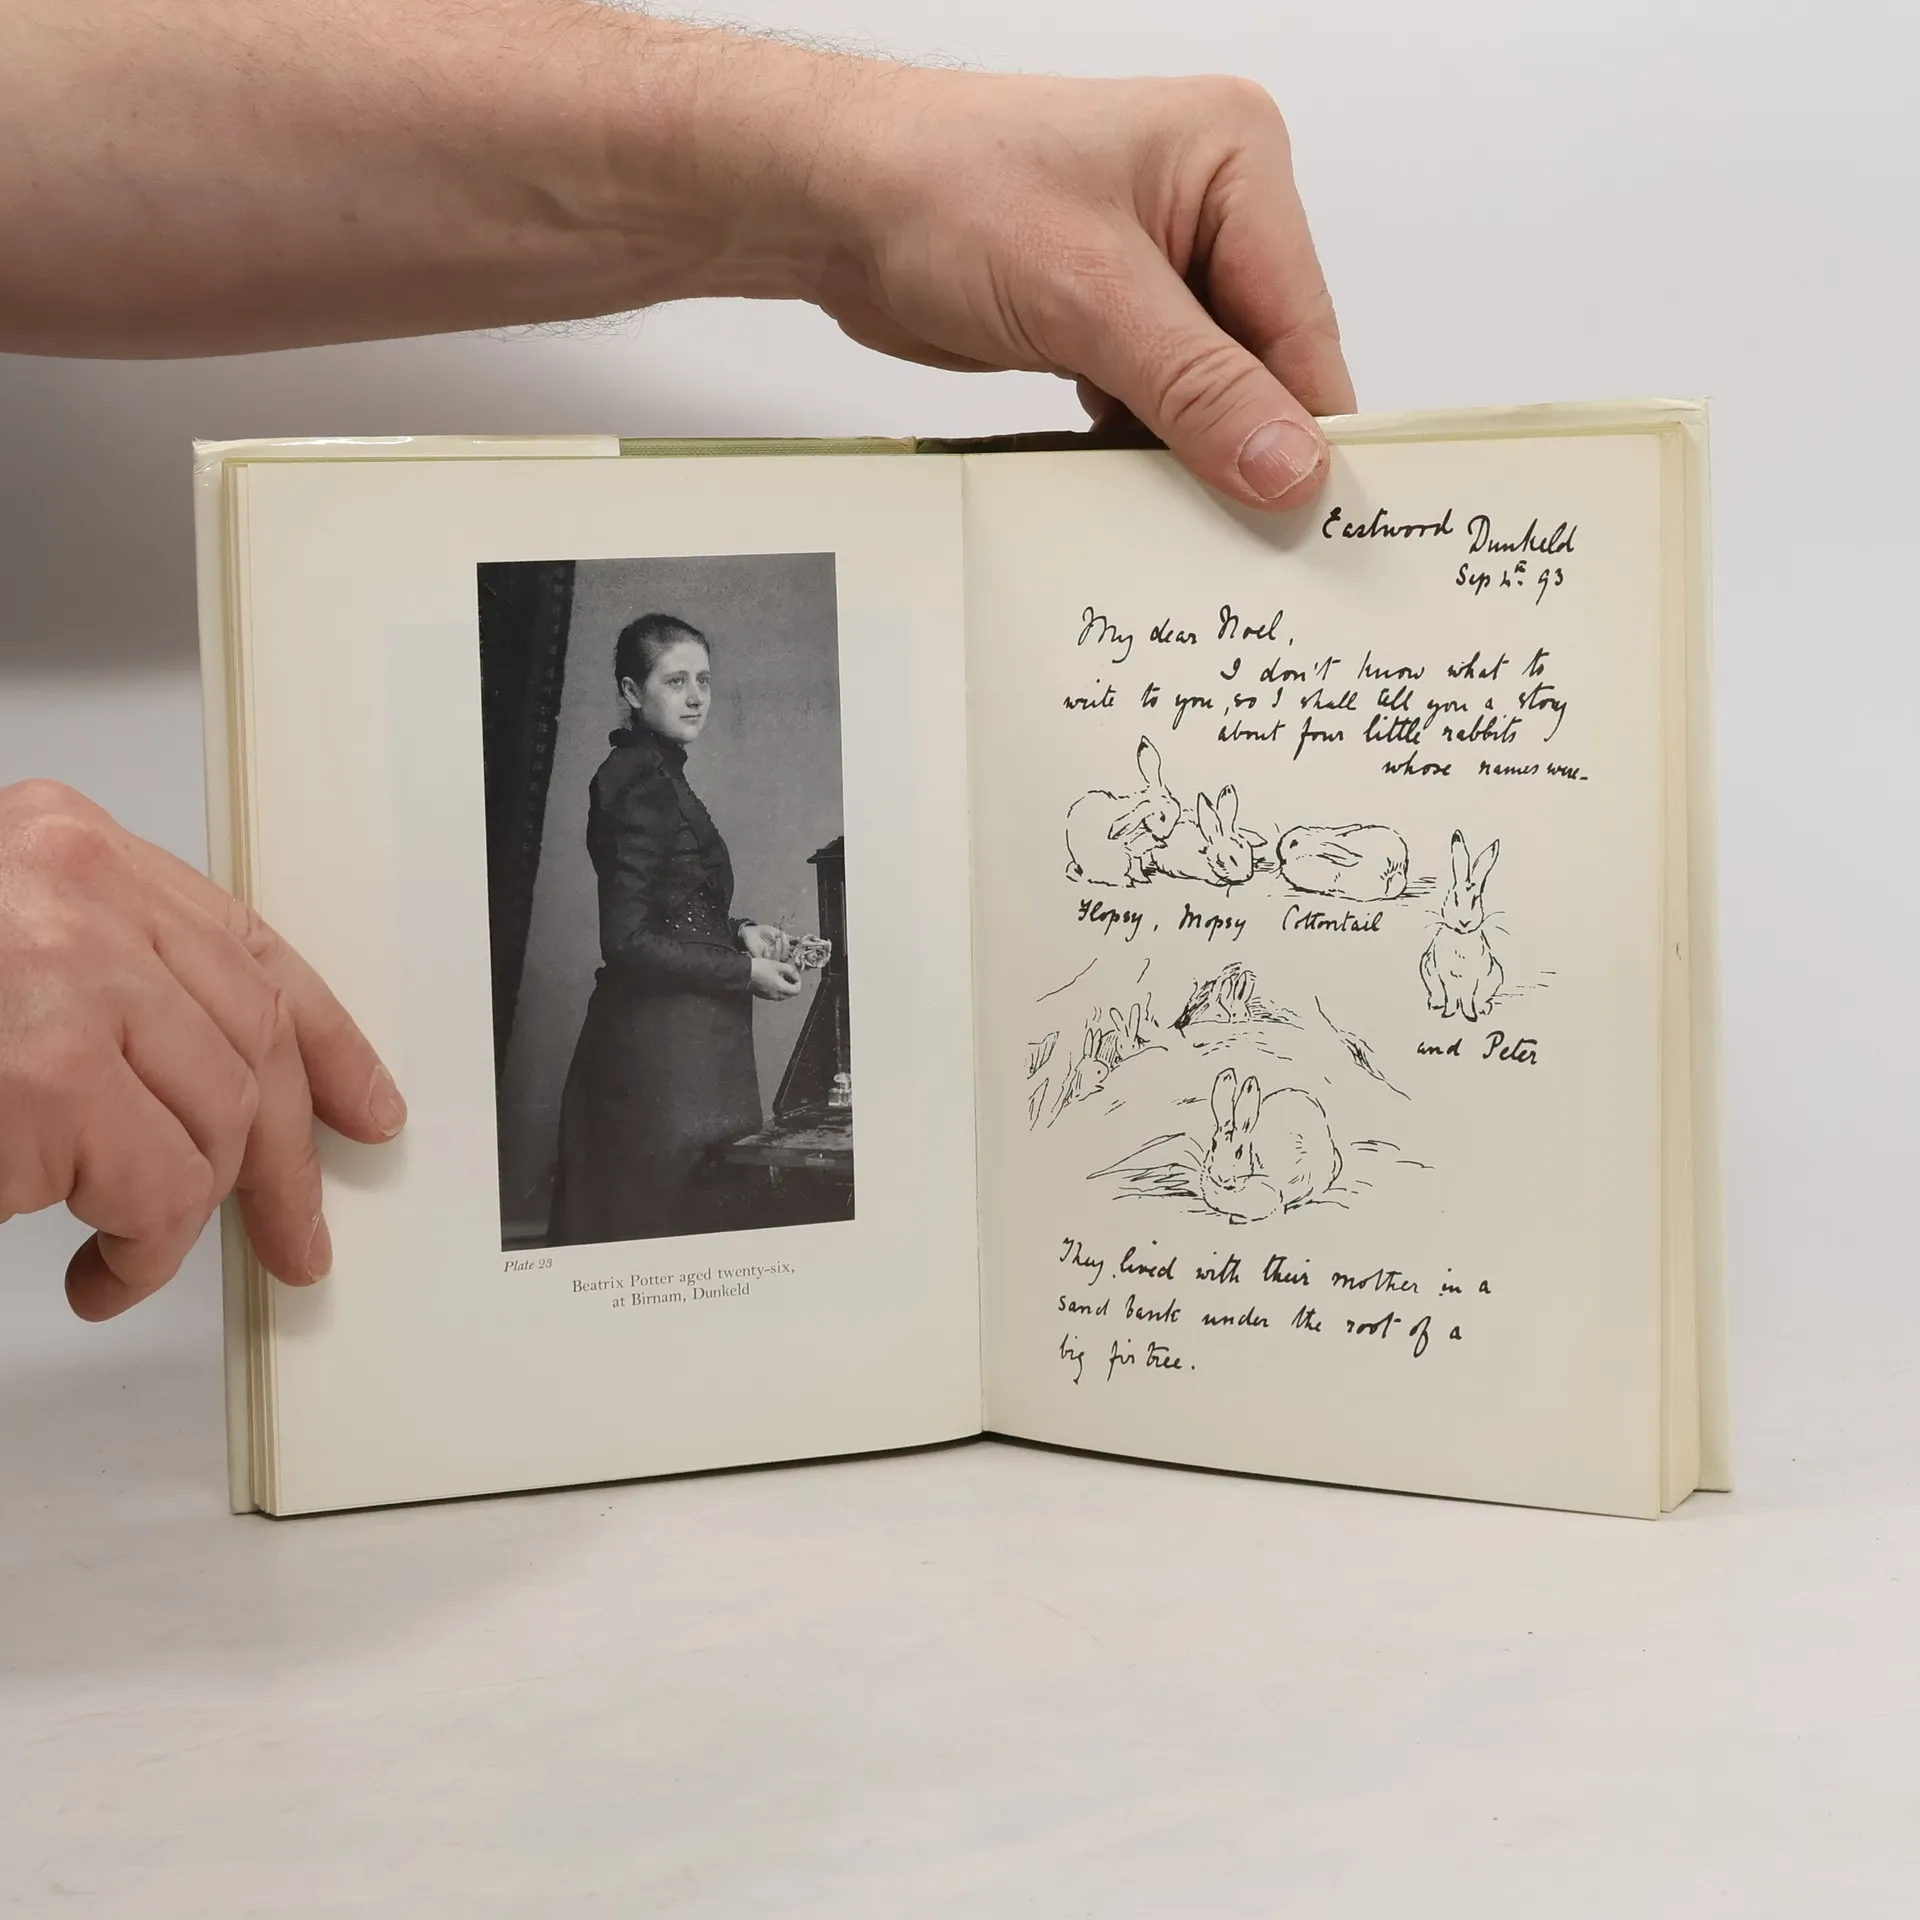 Plate 23
Beatrix Potter aged twenty-six,
at Birnam, Dunkeld
Eastwood Dunkeld
Sep 4th 93
My dear Noel,
I don't know what to
write to you, so I shall tell you a story
about four little rabbits
whose names were_
Flopsy, Mopsy Cottontail
and Peter
They lived with their mother in a
sand bank under the root of a
big fir tree.